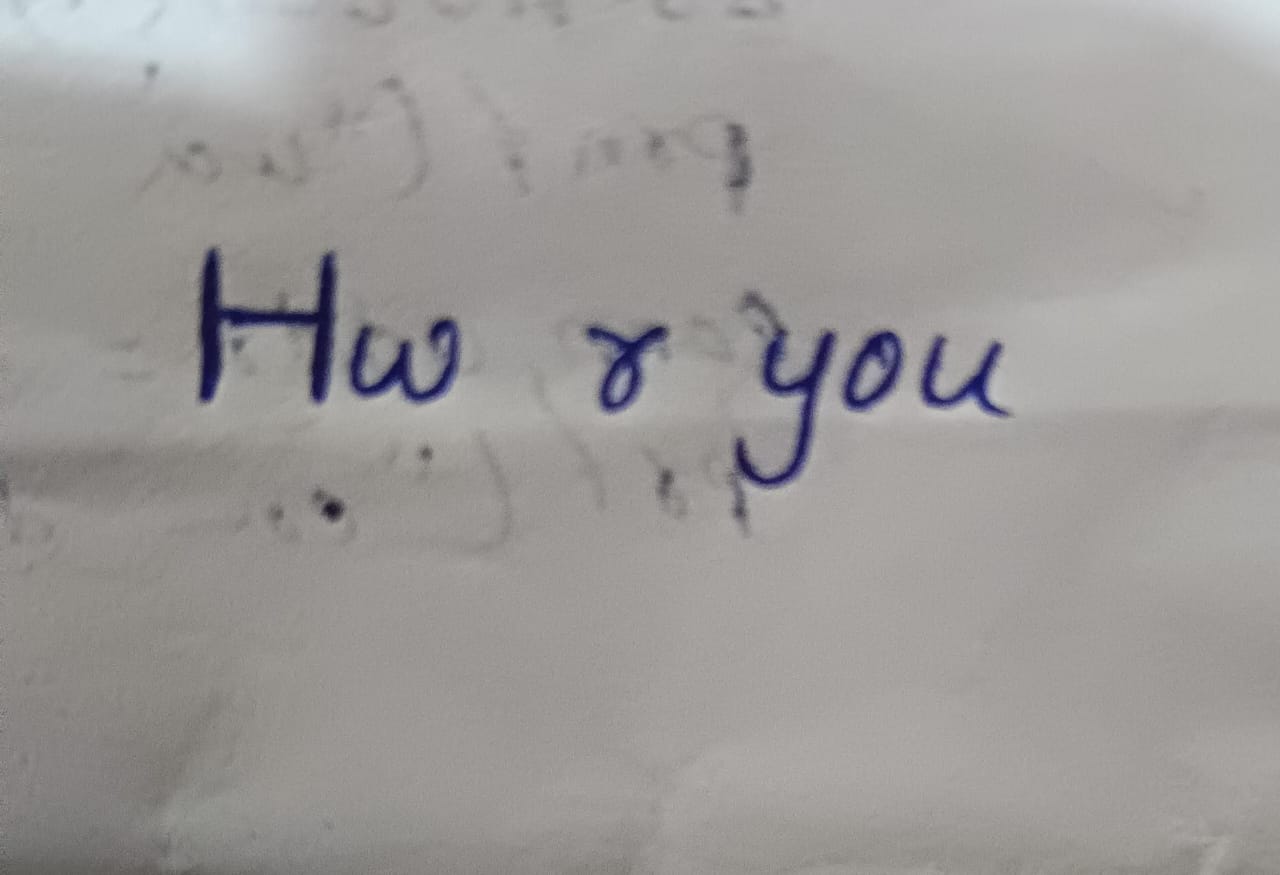 Hw r you